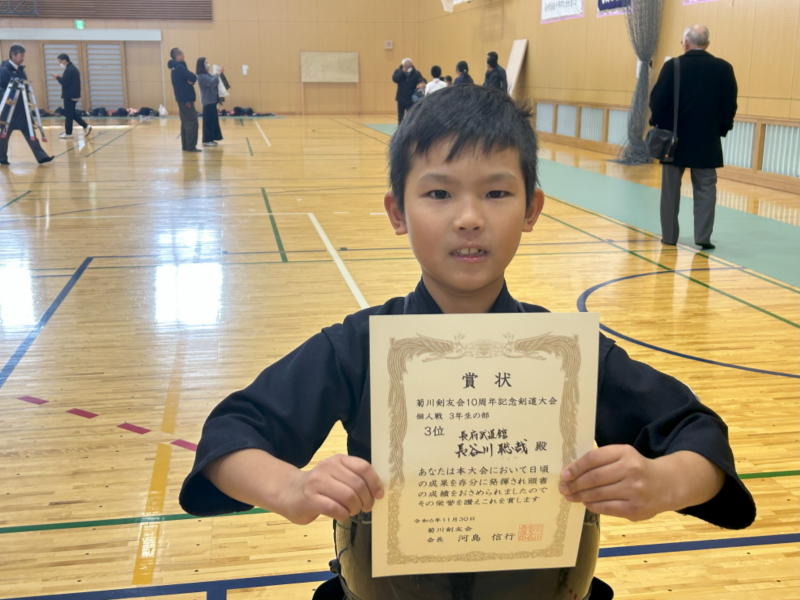 賞状
菊川剣友会10周年記念剣道大会
個人戦 3年生の部
3位 長府武道館
長谷川聡哉 殿
あなたは本大会において日頃
の成果を存分に発揮され頭書
の成績をおさめられましたので
その栄誉を讃えこれを賞します
令和6年11月30日
菊川剣友会
会長 河島 信行